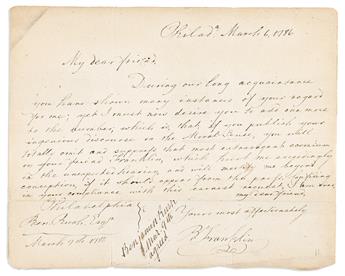 Philada. March 6, 1786
My dear friend,
During our long acquaintance
you have shown many instances of your regard
for me; yet I must now desire you to add one more
to the number, which is, that if you publish your
ingenious discourse on the Moral Sense, you will
totally omit and suppress that most extravagant encomium
on your friend Franklin, which hurt me exceedingly
in the unexpected hearing, and will mortify me beyond
conception, if it should appear from the press. Confiding
in your compliance with this earnest request, I am ever
my dear friend,
Yours most affectionately
B Franklin
Philadelphia
Benj Rush, Esqr.
March 9th 178
Benjamin Rush
Mar. 9th
agrees